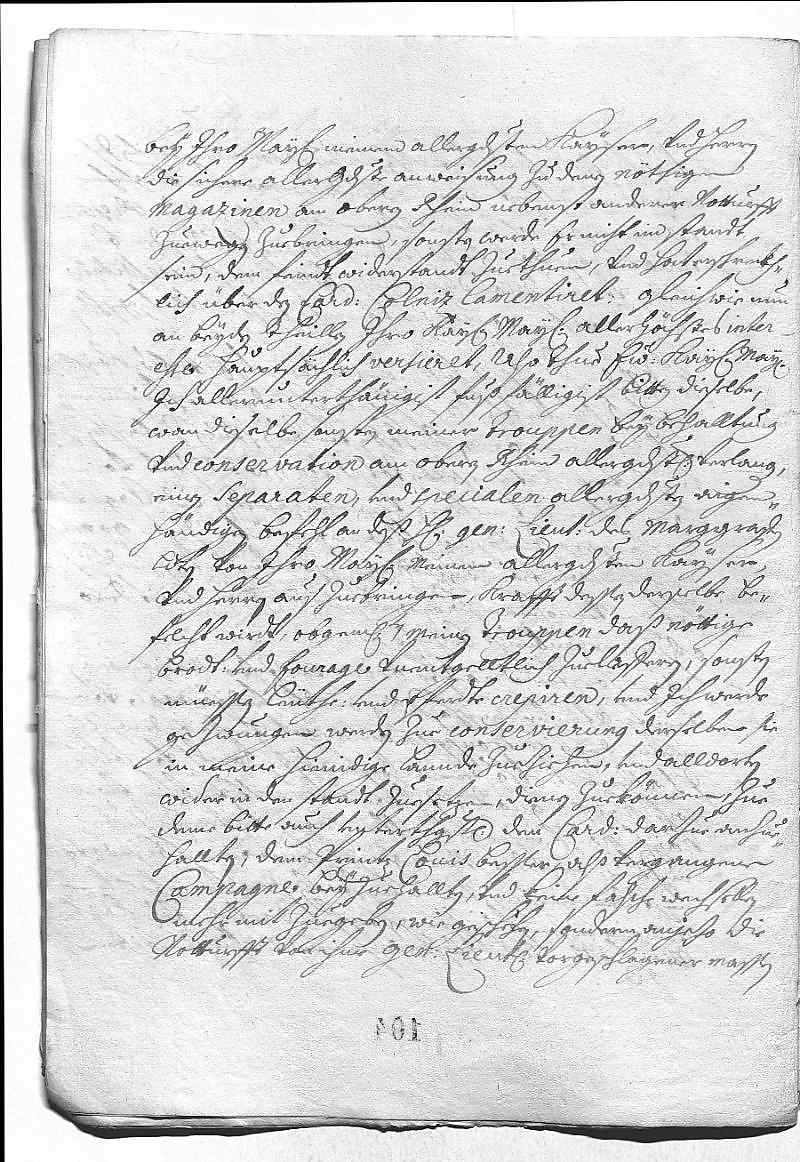 beÿ Ihro Maÿ: meinem allergdsten Kaÿser, vnd Herrn
die sichere allergdste anweisung zu denen nöthigen
Magazinen am obern Rhein nebenst anderer Notturfft
zuewegen zuebringen, sonsten werde Er nicht im standt
sein, dem feindt widerstandt zuethuen, vnd hat erschreckh-
lich über den Card: Colniz lamentiret: gleich wie nun
an beÿden theillen Ihro Kaÿ: Maÿ: allerhöchstes inter-
esse haubtsächlich versieret, Also thue Eu: Kaÿ: Maÿ:
Ich allerunterthänigist fuesfälligist bitten dieselbe,
wan dieselbe sonsten meiner trouppen beÿbehalltung
vnd conservation am obern Rhein allergdst verlang,
einen separaten, vnd specialen allergdsten aigen-
händigen befehl an dess H: gen: Lieut: des Marggrafen
Ld: von Ihro Maÿ: Meinem allergdsten Kaÿser,
vnd Herrn aus zuebringen, Krafft dessen derselbe be-
felcht wirdt, obgem: meinen trouppen dass nöttige
brodt: vnd fourage vnentgelltlich zuelifferen, sonsten
müessen leüthe: vnd Pferdte crepiren, vnd Ich werde
gezwungen werden zue conservierung derselben sie
in meine hieuidige Lannde zueziehen, vnd alldorten
wider in den standt zuesetzen, dienen zuekönnen, Zue
deme bitte auch vnterthgst den Card: dar zue anzue-
hallten, dem Printz Louis besser, alss vergangene
Campagne beÿ zuehallten, vnd keine falsche wechsellen
mehr mit zuegeben, wie geschehen, sondern anjezo die
Notturfft von ihme gen: Lieut: vorgeschlagener massen
104